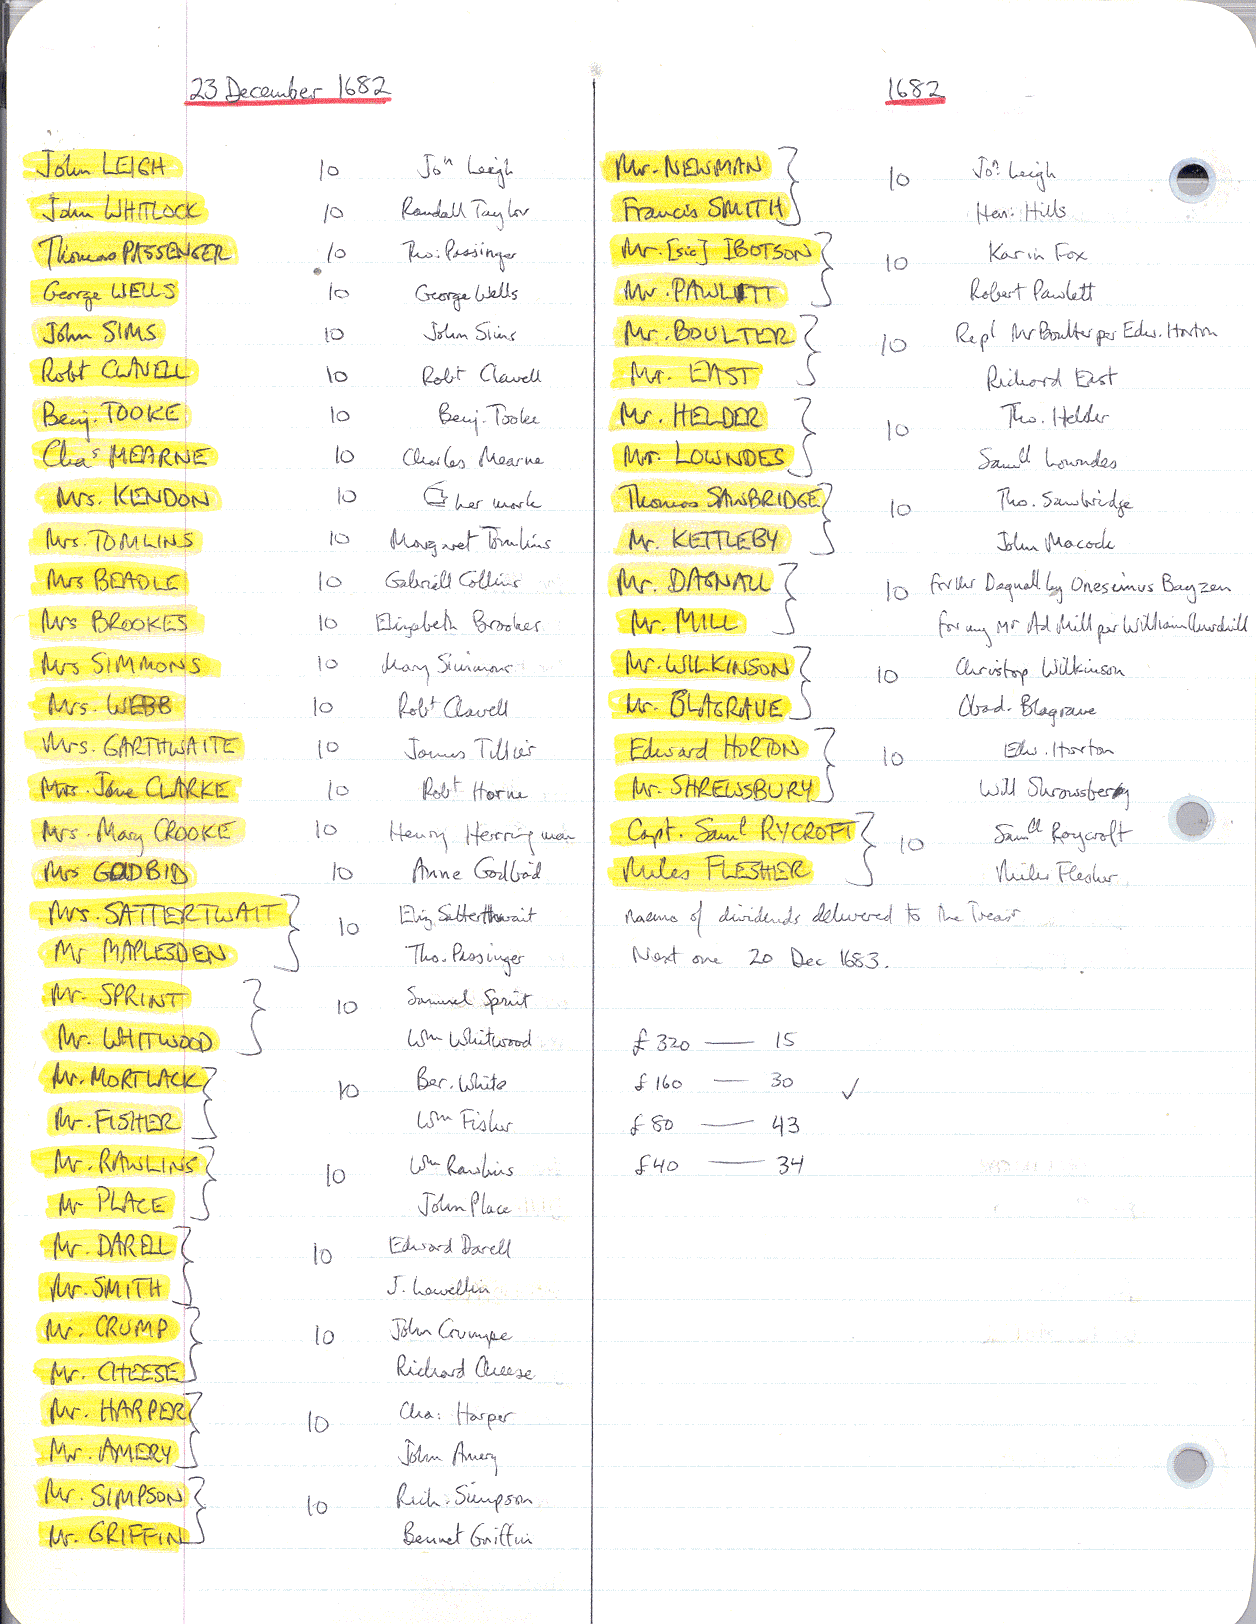 23 December 1682
John LEIGH 10 Joⁿ Leigh
John WHITLOCK 10 Randall Taylor
Thomas PASSENGER 10 Tho: Passinger
George WELLS 10 George Wells
John SIMS 10 John Sims
Robt CLAVELL 10 Robt Clavell
Benj. TOOKE 10 Benj. Tooke
Chaˢ MEARNE 10 Charles Mearne
Mrs. KENDON 10 her mark
Mrs. TOMLINS 10 Margaret Tomlins
Mrs BEADLE 10 Gabriell Collins
Mrs BROOKES 10 Elizabeth Brookes
Mrs SIMMONS 10 Mary Simmons
Mrs. WEBB 10 Robt Clavell
Mrs. GARTHWAITE 10 James Tillier
Mrs. Jane CLARKE 10 Robt Horne
Mrs. Mary CROOKE 10 Henry Herringman
Mrs GODBID 10 Anne Godbid
Mrs. SATTERTWAIT 10 Eliz Satterthwait
Mr MAPLESDEN Tho. Passinger
Mr. SPRINT 10 Samuel Sprint
Mr. WHITWOOD Wm Whitwood
Mr. MORTLACK 10 Ber. White
Mr. FISHER Wm Fisher
Mr. RAWLINS 10 Wm Rawlins
Mr PLACE John Place
Mr. DARELL 10 Edward Darell
Mr. SMITH J. Lewellin
Mr. CRUMP 10 John Crumpe
Mr. CHEESE Richard Cheese
Mr. HARPER 10 Cha: Harper
Mr. AMERY John Amery
Mr. SIMPSON 10 Rich. Simpson
Mr. GRIFFIN Bennet Griffin
1682
Mr. NEWMAN 10 Joⁿ Leigh
Francis SMITH Hen: Hills
Mr. [sic] IBOTSON 10 Karin Fox
Mr. PAWLETT Robert Pawlett
Mr. BOULTER 10 Repᵗ Mr Boulter per Edw. Horton
Mr. EAST Richard East
Mr. HELDER 10 Tho. Helder
Mr. LOWNDES Samll Lowndes
Thomas SAWBRIDGE 10 Tho. Sawbridge
Mr. KETTLEBY John Macock
Mr. DAGNALL 10 for Mr Dagnall by Onesimus Bagzen
Mr. MILL for my Mr Ad Mill per William Churchill
Mr. WILKINSON 10 Christop Wilkinson
Mr. BLAGRAVE Obad. Blagrave
Edward HORTON 10 Edw. Horton
Mr. SHREWSBURY Will Shrowsbery
Capt. Saml RYCROFT 10 Samll Roycroft
Miles FLESHER Miles Flesher
memo of dividends delivered to the Treasʳ
Next one 20 Dec 1683.
£320 — 15
£160 — 30 ✓
£80 — 43
£40 — 34